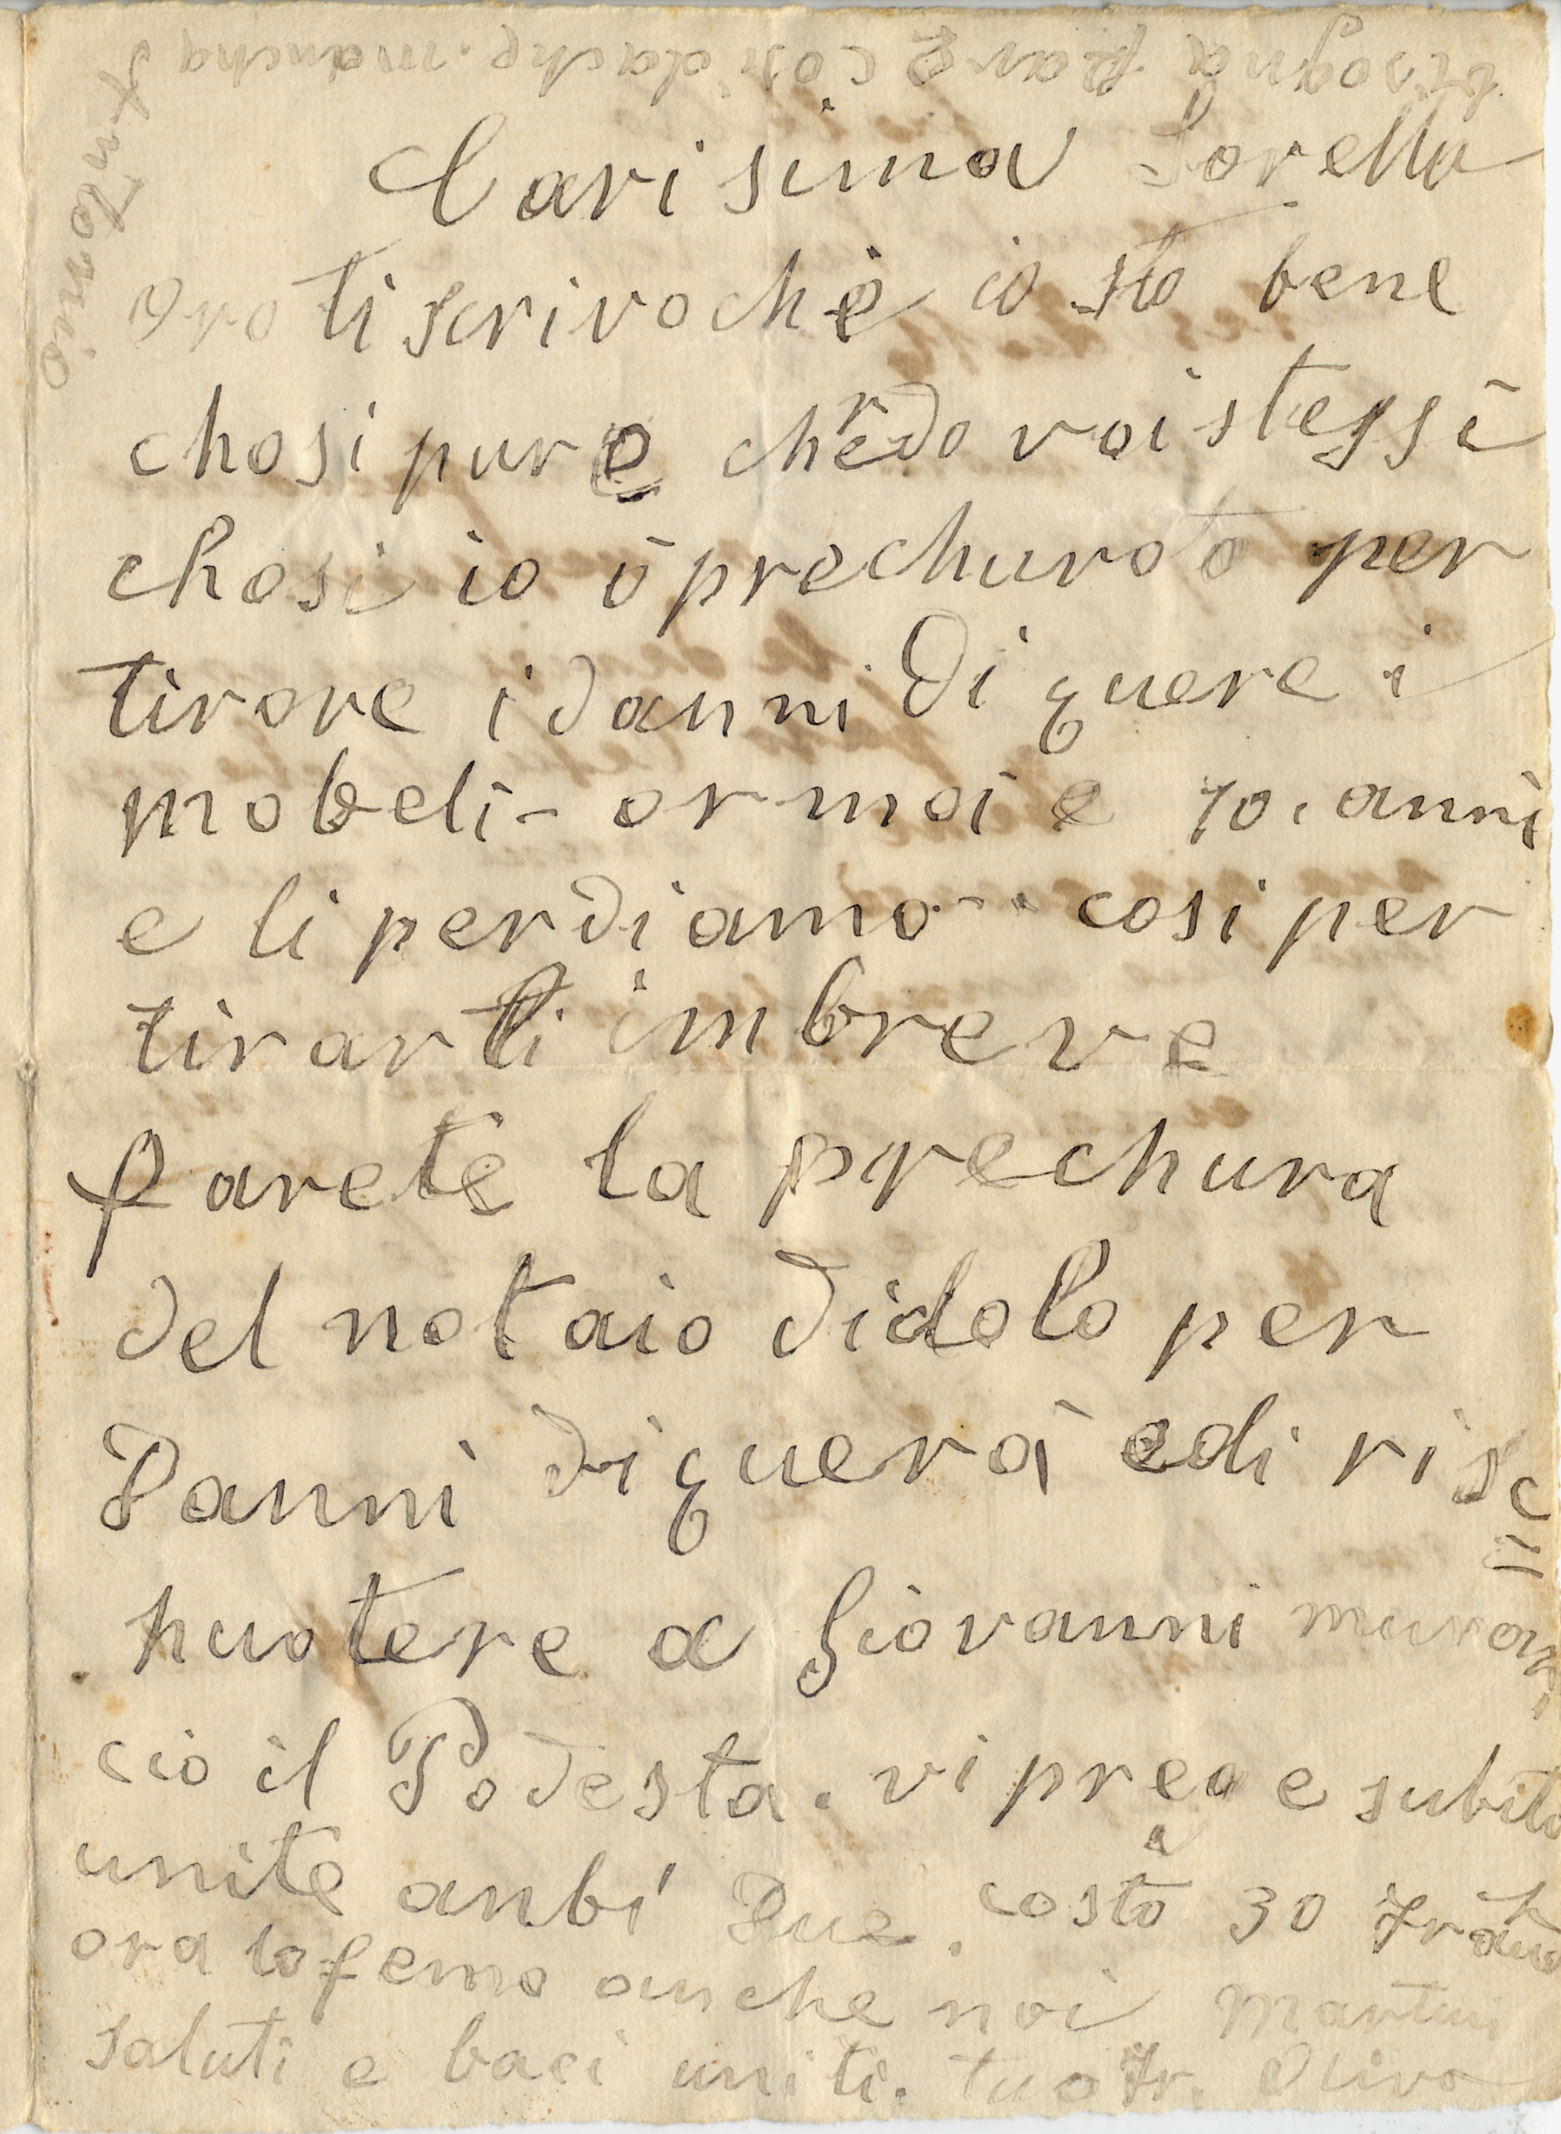 bisogna fare cosi dache mancha
Antonio
Carisima Sorella
Ora ti scrivo che io sto bene
chosi pure chredo voi stessi
chosi io ò prechurato per
tirare i danni di guere i
mobeli- ormai e 10. anni
e li perdiamo cosi per
tirarti imbreve
farete la prechura
del notaio didolo per
Danni di guerà e di risc=
huotere a Giovanni
cio il Podesta. vi prego e subito
unite anbi Due. costa 30 franchi
ora lo femo anche noi Martini
saluti e baci uniti. tuo Fr. Olivo